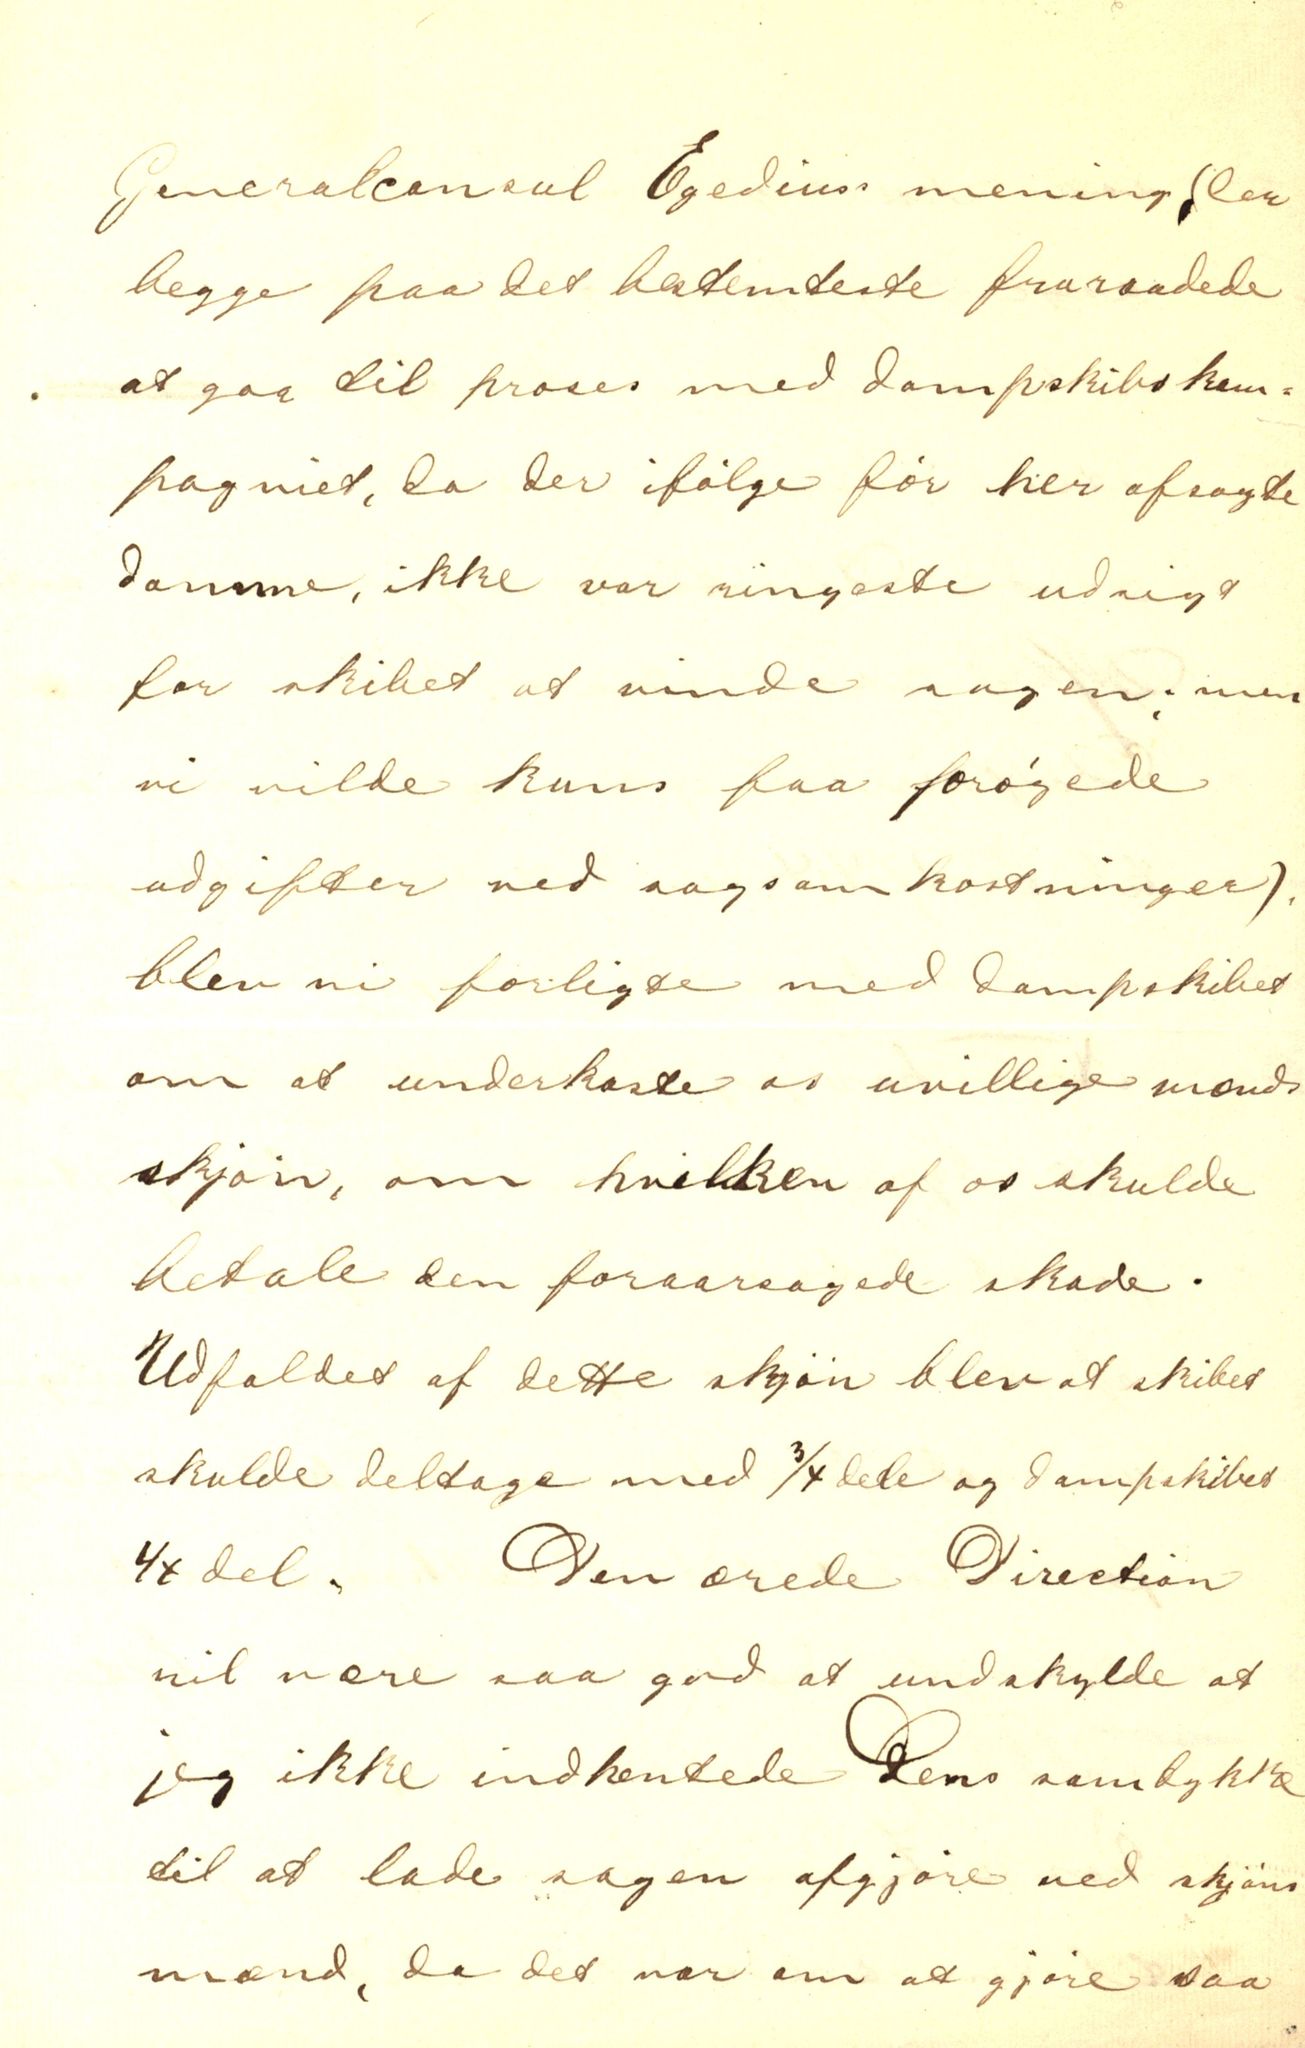 Generalconsul Egedius's mening (der
begge paa det bestemteste fraraadede
at gaa til proses med dampskibskom=
pagniet, da der ifølge før her afsagte
domme, ikke var ringeste udsigt
for skibet at vinde sagen; men
vi vilde kuns faa forøgede
udgifter ved sagsomkostninger),
blev vi forligte med dampskibet
om at underkaste os uvillige mænds
skjøn, om hvilken af os skulde
betale den foraarsagede skade.
Udfaldet af dette skjøn blev at skibet
skulde deltage med 3/4 dele og dampskibet
1/4 del. Den ærede Direction
vil være saa god at undskylde at
jeg ikke indhentede Dens samtykke
til at lade sagen afgjøre ved skjøns
mænd, da det var om at gjøre saa